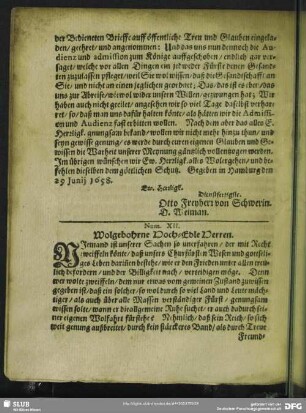 der Bedieneten Brieffe auff öffentliche Treu und Glauben eingela-
den / geehret / und angenommen: Und das uns nun dennoch die Au-
dienz und admission zum Könige auffgeschoben / endlich gar ver-
saget / welche vor allen Dingen ein jedweder Fürst denen Gesand-
ten zuzulassen pfleget / weil Sie wol wissen / daß die Gesandschafft an
Sie / und nicht an einen jeglichen geordnet; Das / das ist es eben / das
uns zur Abreise / wiewol wider unsern Willen / gezwungen hat. Wir
haben auch nicht geeilet / angesehen wir so viel Tage daselbst verhar-
ret / so / daß man uns dafür halten könte / als hätten wir die Admissi-
on und Audienz fast erbitten wollen. Nach dem aber das alles E.
Herzligk. gnungsam bekand / wollen wir nicht mehr hinzu thun / und
seyn gewisse gnung / es werde durch euren eigenen Glauben und Ge-
wissen die Warheit unserer Meynung gäntzlich vollenzogen werden.
Im übrigen wünschen wir Ew. Herzligk. alles Wolergehen / und be-
fehlen dieselben dem göttlichen Schutz. Gegeben in Hamburg den
25 Junij 1658.
Ew. Herzligk.
Dienstfertigste.
Otto Freyherr von Schwerin.
D. Weiman.
Num. XII.
Wolgebohrne Hoch-Edle Herren.
Niemand ist unserer Sachen so unerfahren / der mit Recht
zweiffeln könte / daß unsers Churfürsten Wesen und gantzli-
ges Leben darinn bestehe / wie er den Frieden unter allen treu-
lich befordern / und der Billigkeit nach / verteidigen möge. Denn
wer wolte zweiffeln / dem nur etwas vom gemeinen Zustand zuwissen
gegeben ist / daß ein solcher / so wol durch so viel Land und Leute mäch-
tiger / als auch über alle Massen verständiger Fürst / gnungsam
wissen solte / wann er die allgemeine Ruhe suchet / er auch dadurch sei-
ner eigenen Wolfahrt fürstehe? Nehmlich / daß im Reich / so sich
weit genung außbreitet / durch kein stärckeres Band / als durch Treue
Freund-
SLUB
Wir führen Wissen.
gefördert von der
Deutschen Forschungsgemeinschaft
DFG